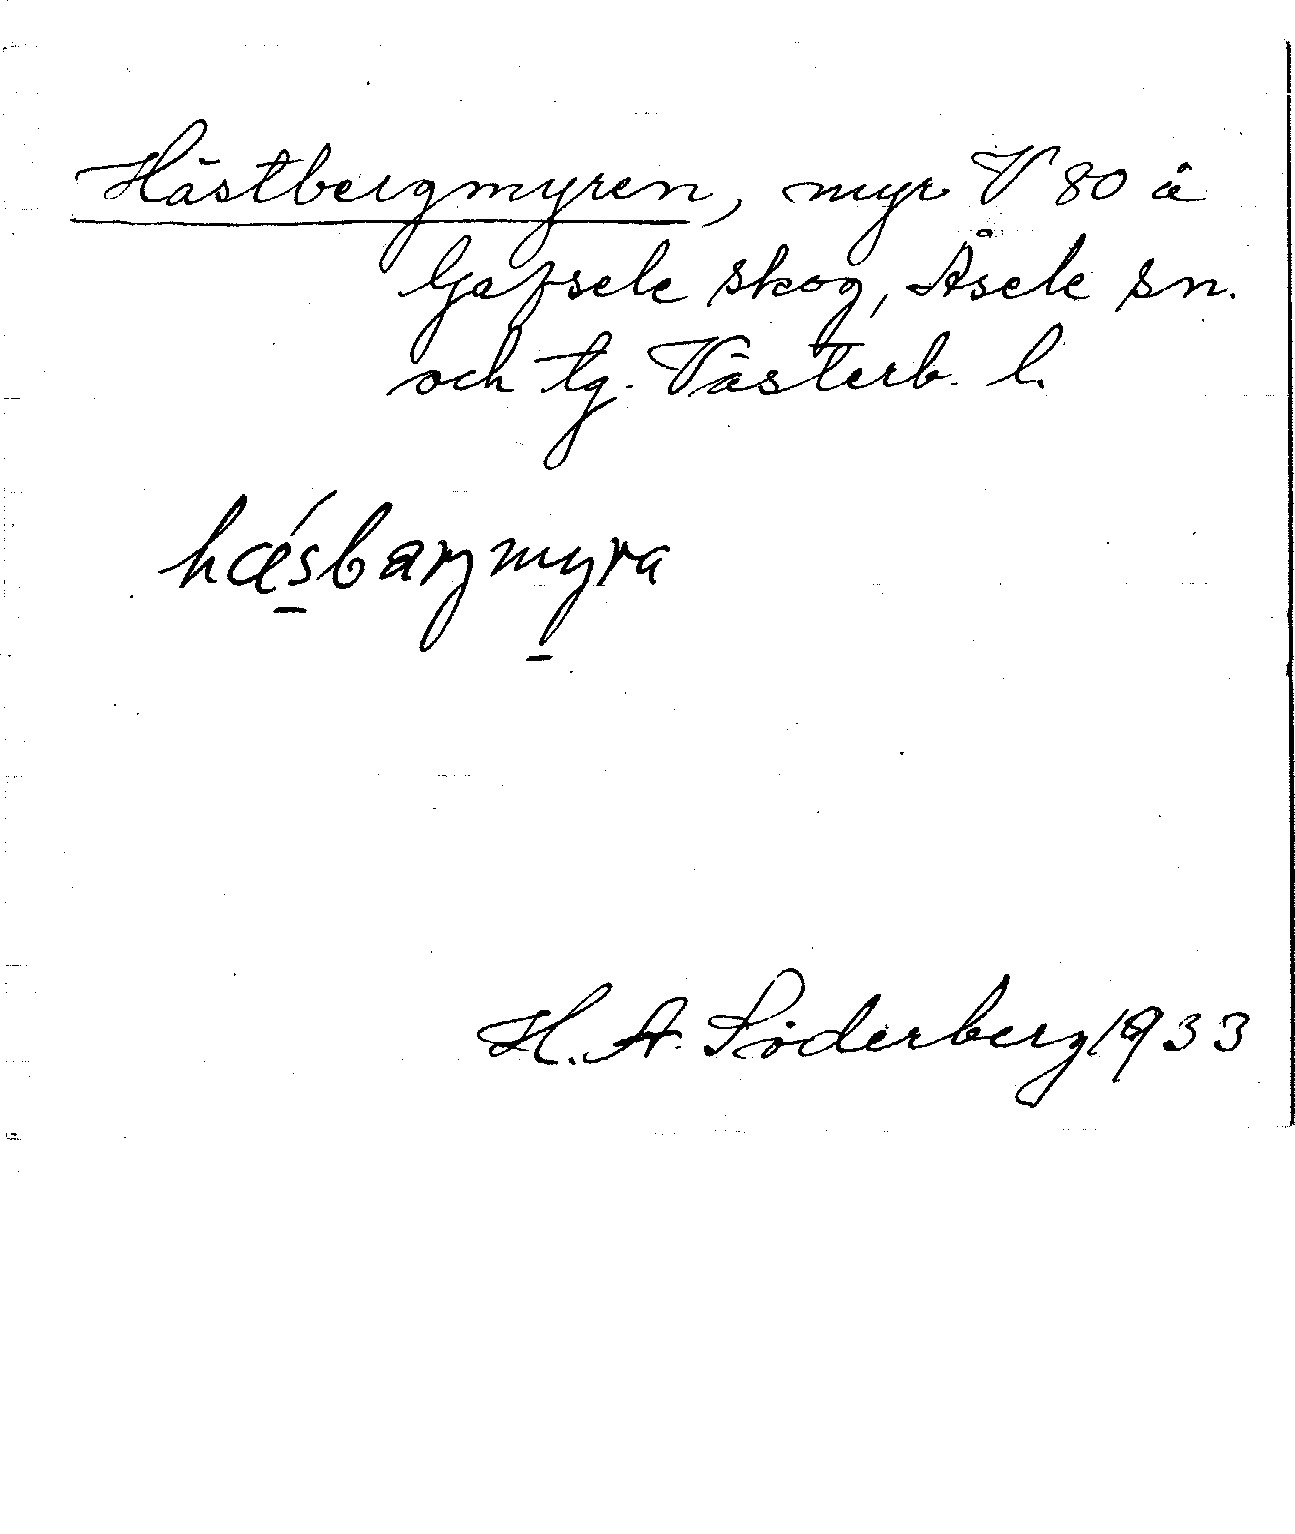 Hästbergmyren, myr V 80 å
Gafsele skog, Åsele sn.
och tg. Västerb. l.
hǽsbarjmyra
H. A. Söderberg 1933